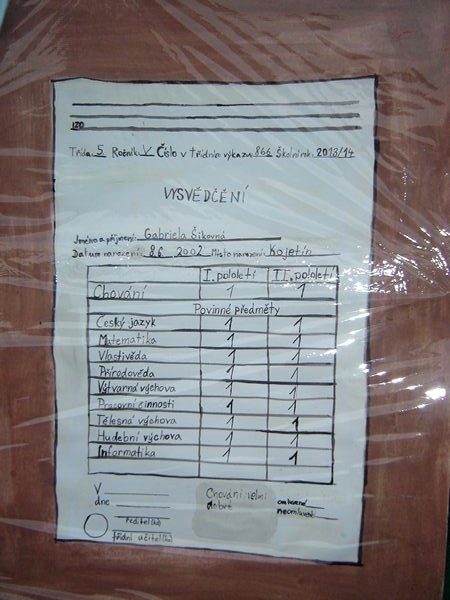 IZO
Třída: 5 Ročník: V Číslo v třídním výkazu: 866 Školní rok: 2013/14
VYSVĚDČENÍ
Jméno a příjmení: Gabriela Šikovná
Datum narození: 8.6. 2002 Místo narození: Kojetín
I. pololetí II. pololetí
Chování 1 1
Povinné předměty
Český jazyk 1 1
Matematika 1 1
Vlastivěda 1 1
Přírodověda 1 1
Výtvarná výchova 1 1
Pracovní činnosti 1 1
Tělesná výchova 1 1
Hudební výchova 1 1
Informatika 1 1
V
dne
ředitel(ka)
třídní učitel(ka)
Chování velmi
dobré
omluvené
neomluvené